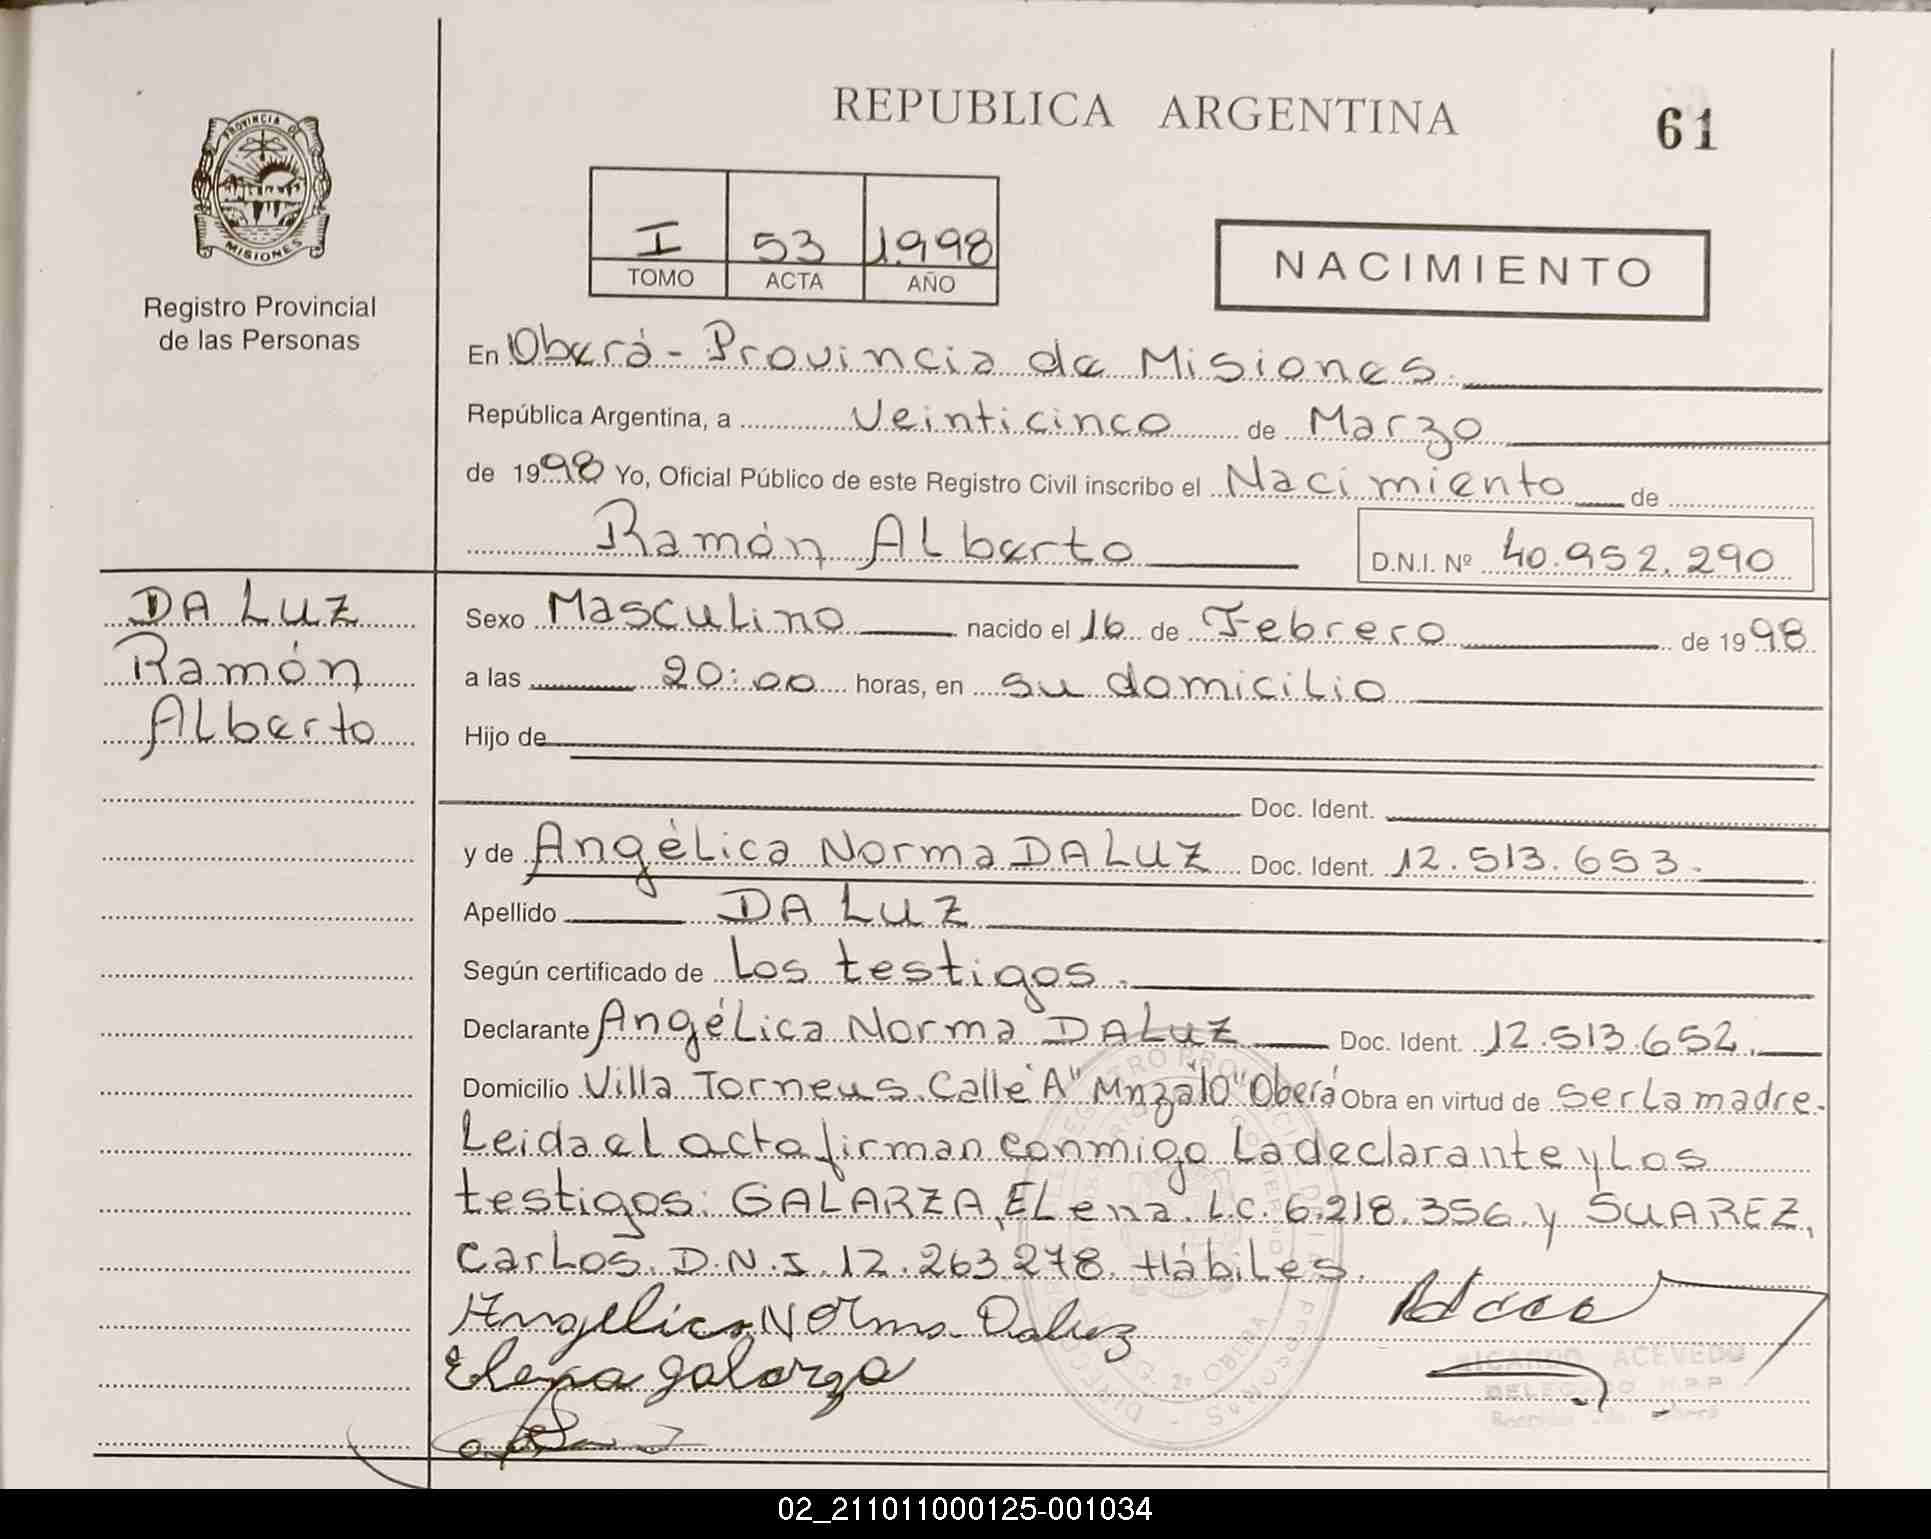 REPUBLICA ARGENTINA
61
PROVINCIA DE
MISIONES
Registro Provincial
de las Personas
I 53 1.998
TOMO ACTA AÑO
NACIMIENTO
En Oberá - Provincia de Misiones.
República Argentina, a Veinticinco de Marzo
de 1998 Yo, Oficial Público de este Registro Civil inscribo el Nacimiento de
Ramón Alberto D.N.I. Nº 40.952.290
DA LUZ
Ramón
Alberto
Sexo Masculino nacido el 16 de Febrero de 1998
a las 20:00 horas, en su domicilio
Hijo de
Doc. Ident.
y de Angélica Norma DA LUZ Doc. Ident. 12.513.653.
Apellido DA LUZ
Según certificado de Los testigos.
Declarante Angélica Norma DA LUZ Doc. Ident. 12.513.652.
Domicilio Villa Torneus Calle "A" Mnza "10" Oberá Obra en virtud de ser La madre.
Leida el acta firman conmigo La declarante y Los
testigos: GALARZA, ELena. L.C. 6.218.356. y SUAREZ,
Carlos. D.N.I. 12.263.278. Hábiles.
Angelica Norma Daluz
Elena galarza
RICARDO ACEVEDO
DELEGADO
02_211011000125-001034